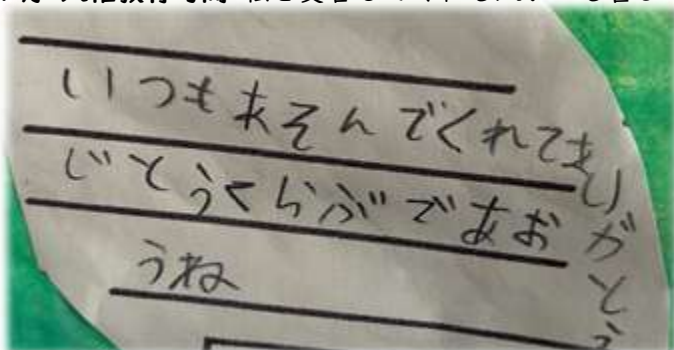 いつもあそんでくれてありがとう
じどうくらぶであお
うね